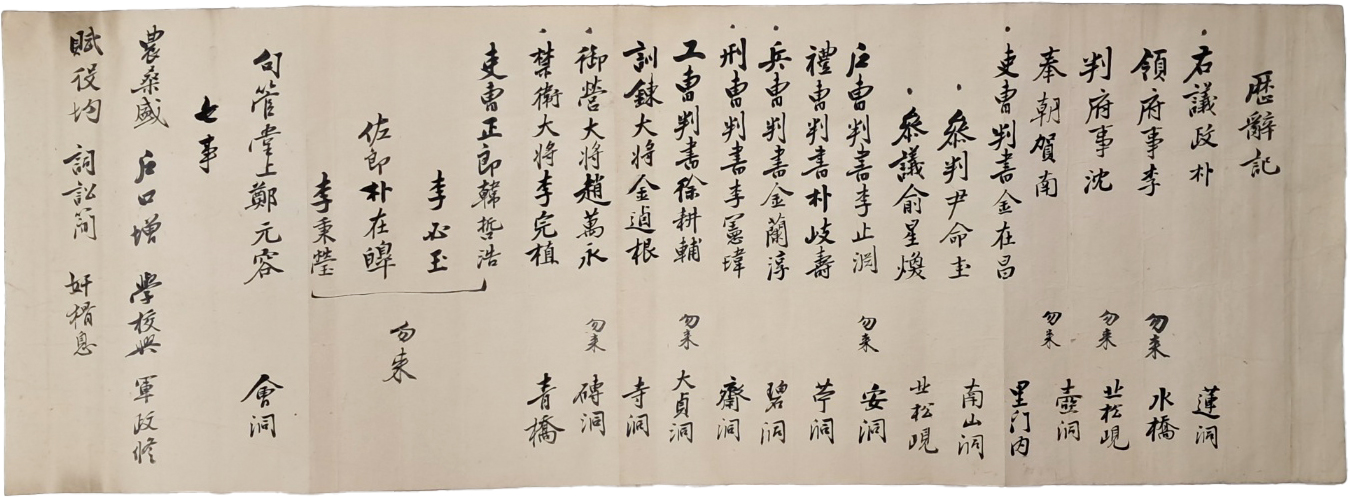 歷辭記
右議政朴 蓮洞
領府事李 勿来 水橋
判府事沈 勿来 北松峴
奉朝賀南 勿来 壺洞
吏曹判書金在昌 里门内
參判尹命圭 南山洞
參議俞星煥 北松峴
戶曹判書李止淵 勿来 安洞
禮曹判書朴岐壽 苧洞
兵曹判書金蘭淳 碧洞
刑曹判書李憲瑋 齋洞
工曹判書徐耕輔 勿来 大貞洞
訓鍊大将金逌根 寺洞
御營大将趙萬永 勿来 磚洞
禁衛大将李完植 青橋
吏曹正郎韓哲浩
李必玉
佐郎朴在皥 勿来
李秉瑩
句管堂上鄭元容 會洞
七事
農桑盛 戶口增 學校興 軍政修
賦役均 詞訟簡 奸猾息